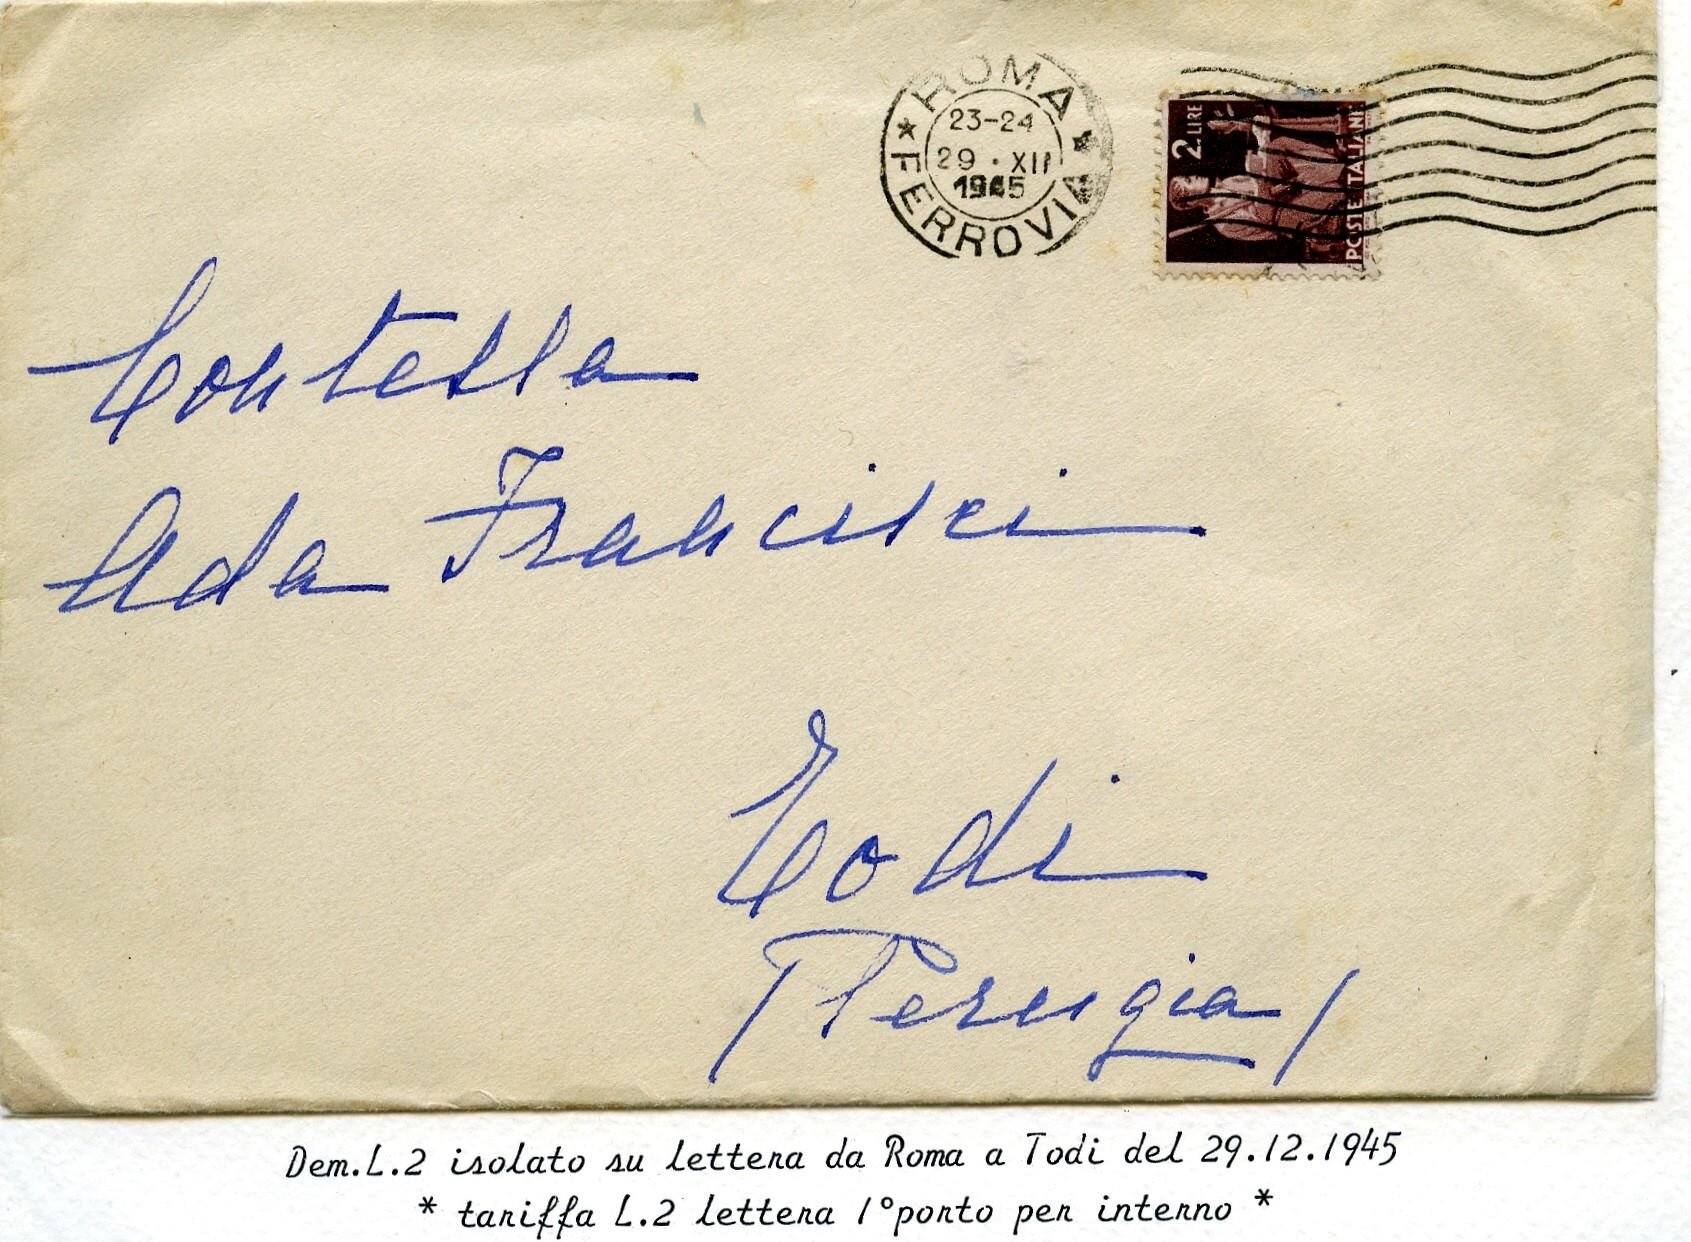 ROMA
FERROVIA
23-24
29 · XII
1945
2 LIRE
POSTE ITALIANE
Contessa
Ada Francisci
Todi
/Perugia/
Dem.L.2 isolato su lettera da Roma a Todi del 29.12.1945
* tariffa L.2 lettera 1°porto per interno *